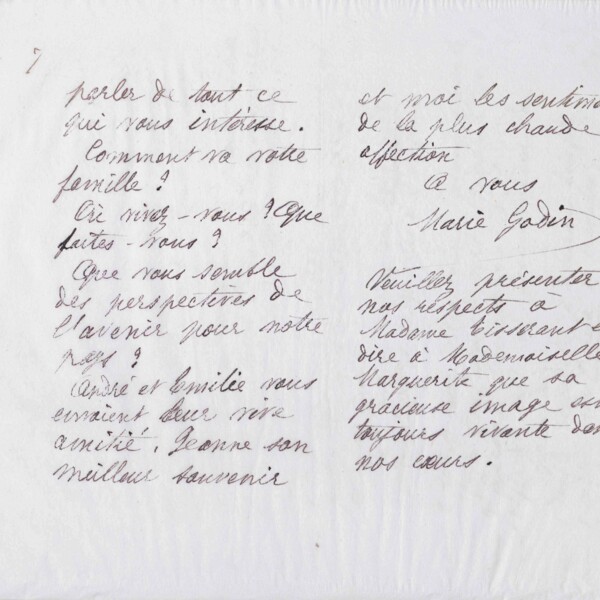 7
parler de tout ce
qui vous intéresse.
Comment va votre
famille ?
Où vivez-vous ? Que
faites-vous ?
Que vous semble
des perspectives de
l'avenir pour notre
pays ?
André et Emilie vous
envoient leur vive
amitié. Jeanne son
meilleur souvenir
et moi les sentim
de la plus chaude
affection
A vous
Marie Godin
Veuillez présenter
nos respects à
Madame Tisserant e
dire à Mademoiselle
Marguerite que sa
gracieuse image est
toujours vivante dan
nos cœurs.